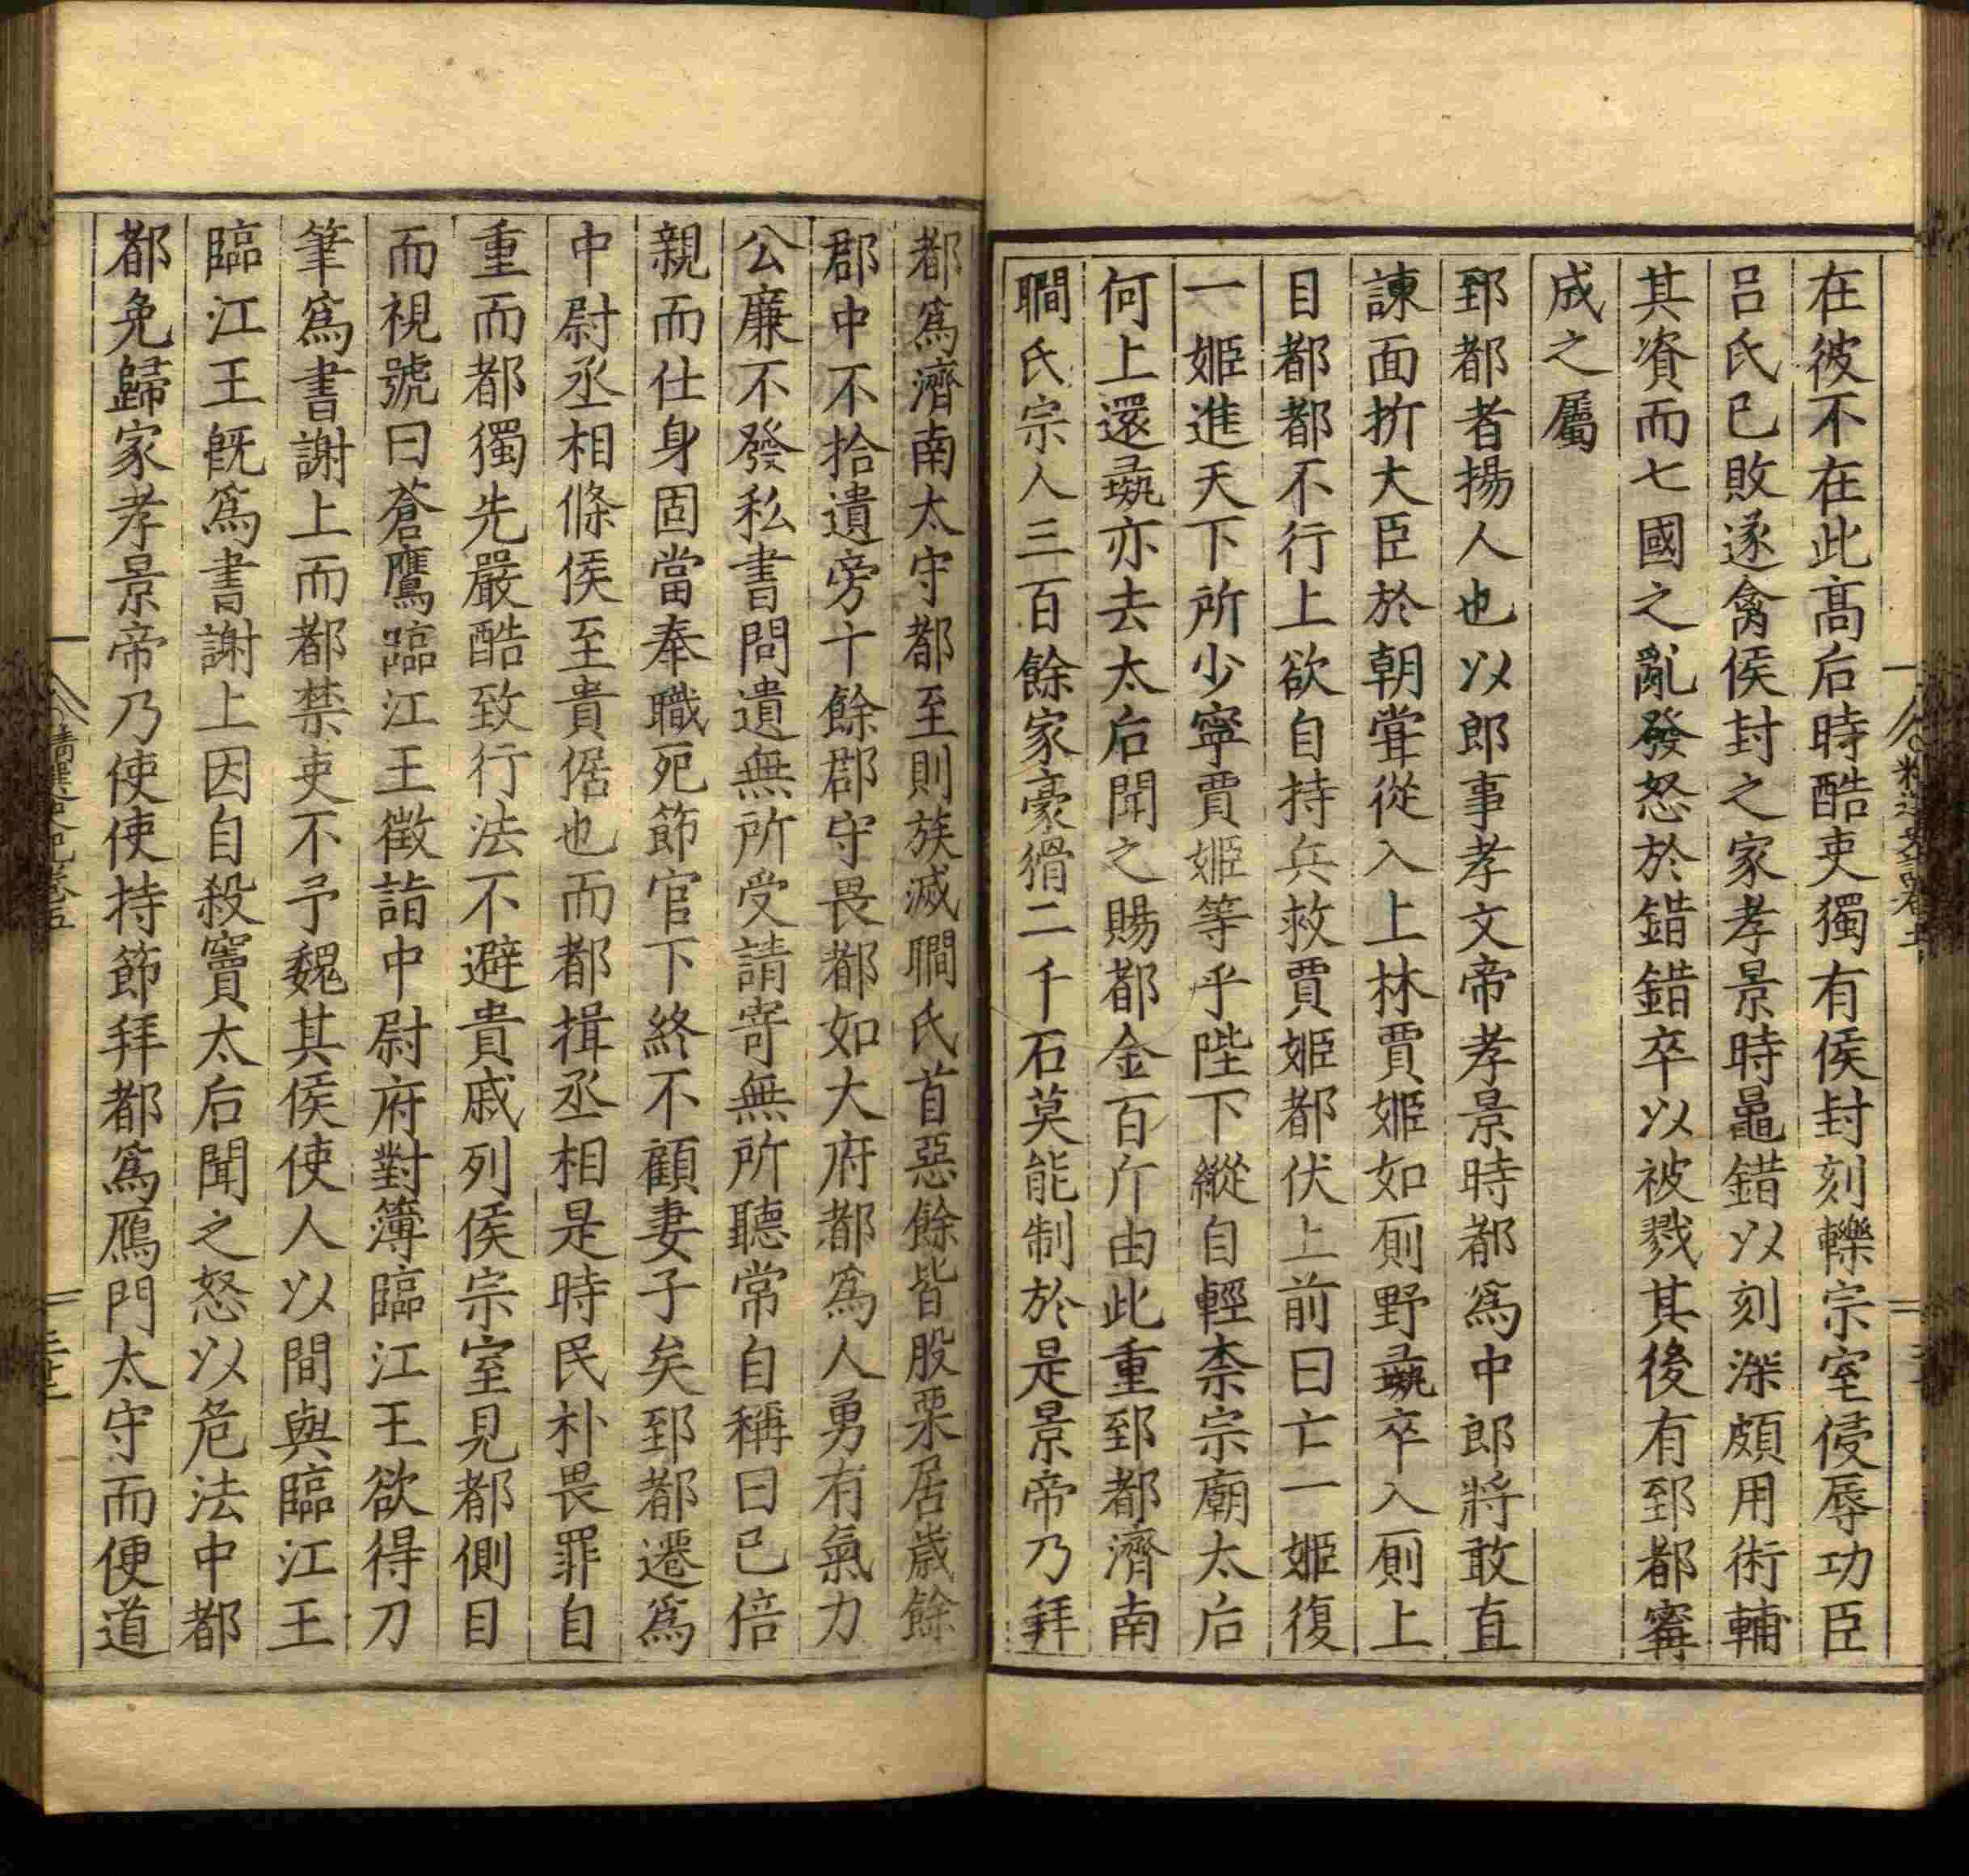 在彼不在此高后時酷吏獨有侯封刻轢宗室侵辱功臣
呂氏已敗遂禽侯封之家孝景時鼂錯以刻深頗用術輔
其資而七國之亂發怒於錯錯卒以被戮其後有郅都寗
成之屬
郅都者揚人也以郎事孝文帝孝景時都爲中郎將敢直
諫面折大臣於朝甞從入上林賈姬如厠野彘卒入厠上
目都都不行上欲自持兵救賈姬都伏上前曰亡一姬復
一姬進天下所少寧賈姬等乎陛下縱自輕柰宗廟太后
何上還彘亦去太后聞之賜都金百斤由此重郅都濟南
瞷氏宗人三百餘家豪猾二千石莫能制於是景帝乃拜
都爲濟南太守都至則族滅瞷氏首惡餘皆股栗居歲餘
郡中不拾遺旁十餘郡守畏都如大府都爲人勇有氣力
公廉不發私書問遺無所受請寄無所聽常自稱曰已倍
親而仕身固當奉職死節官下終不顧妻子矣郅都遷爲
中尉丞相條侯至貴倨也而都揖丞相是時民朴畏罪自
重而都獨先嚴酷致行法不避貴戚列侯宗室見都側目
而視號曰蒼鷹臨江王徵詣中尉府對簿臨江王欲得刀
筆爲書謝上而都禁吏不予魏其侯使人以間與臨江王
臨江王旣爲書謝上因自殺竇太后聞之怒以危法中都
都免歸家孝景帝乃使使持節拜都爲鴈門太守而便道